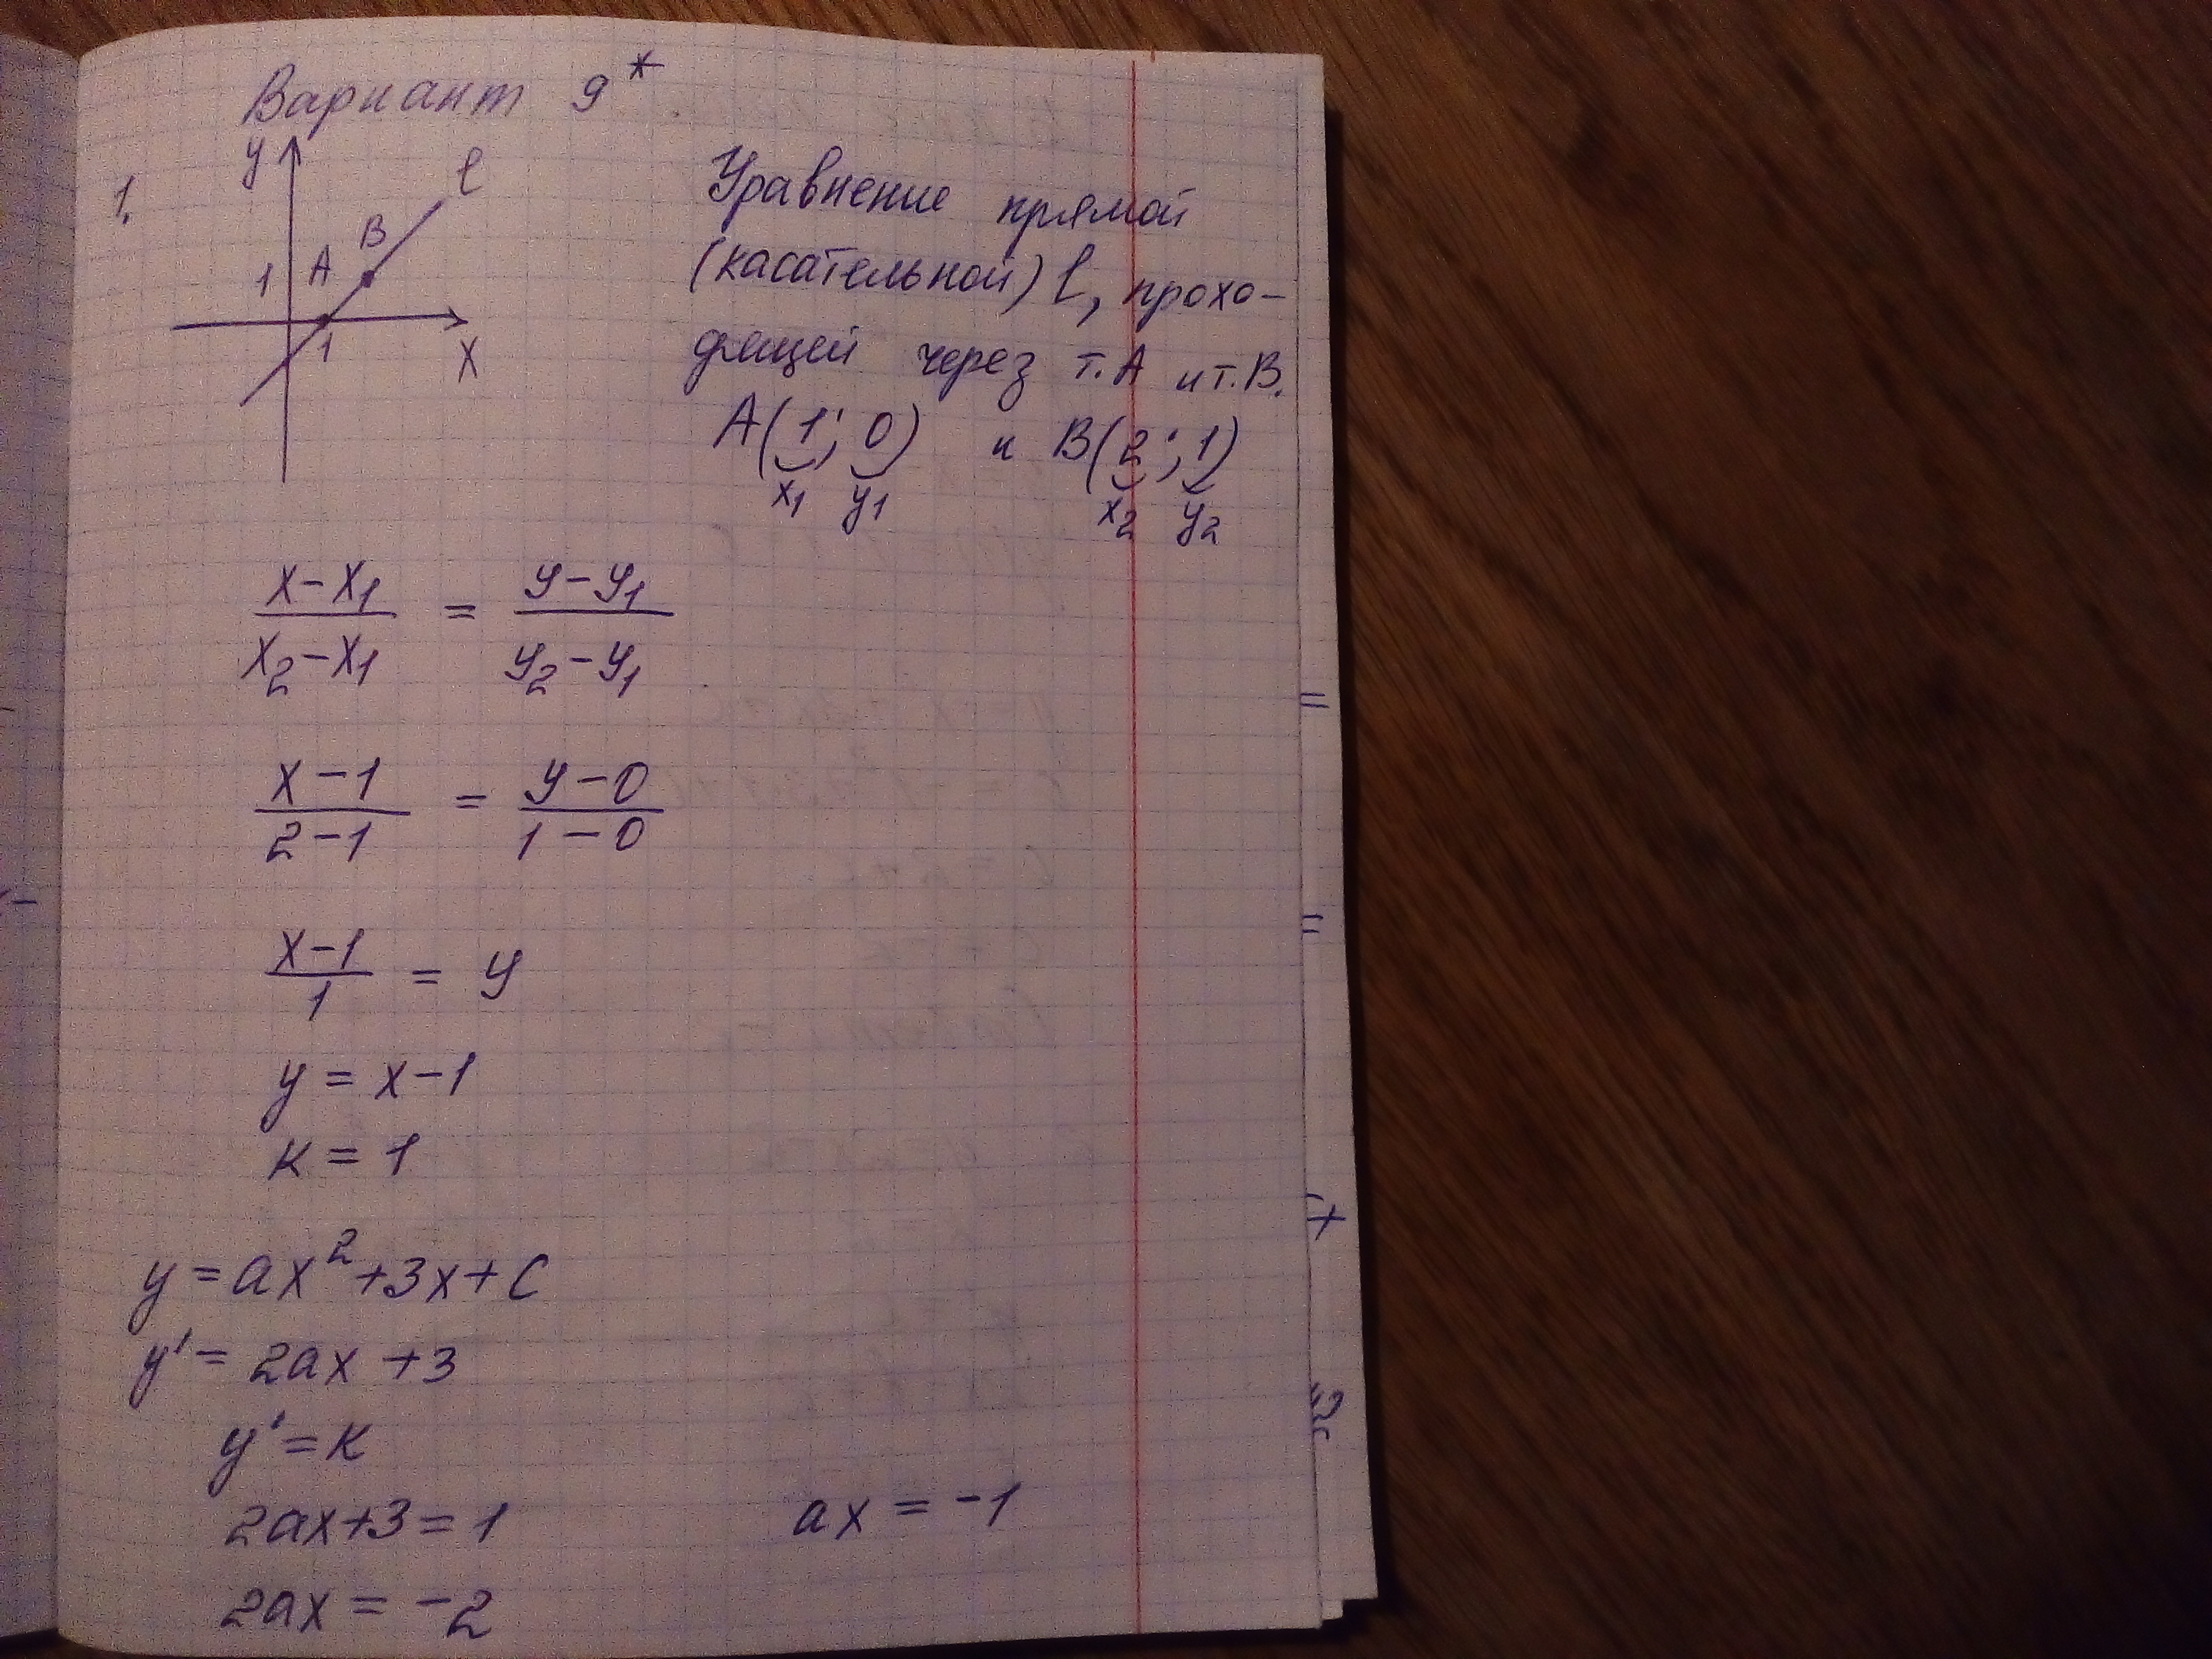 Вариант 9*
1.
y
l
B
A
1
1
X
Уравнение прямой
(касательной) l, прохо-
дящей через т.А и т.В.
A(1; 0) и B(2; 1)
x₁ y₁ x₂ y₂
(x-x₁)/(x₂-x₁) = (y-y₁)/(y₂-y₁)
(x-1)/(2-1) = (y-0)/(1-0)
(x-1)/1 = y
y = x-1
k = 1
y = ax²+3x+c
y' = 2ax+3
y' = k
2ax+3 = 1
ax = -1
2ax = -2